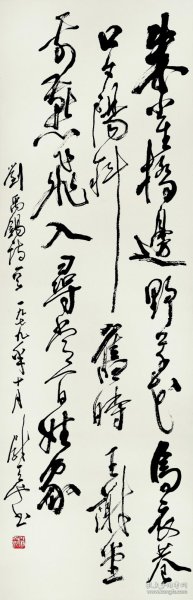 朱雀橋邊野草花烏衣巷
口夕陽斜舊時王謝堂
前燕飛入尋常百姓家
劉禹錫詩 一九七九年十月 書